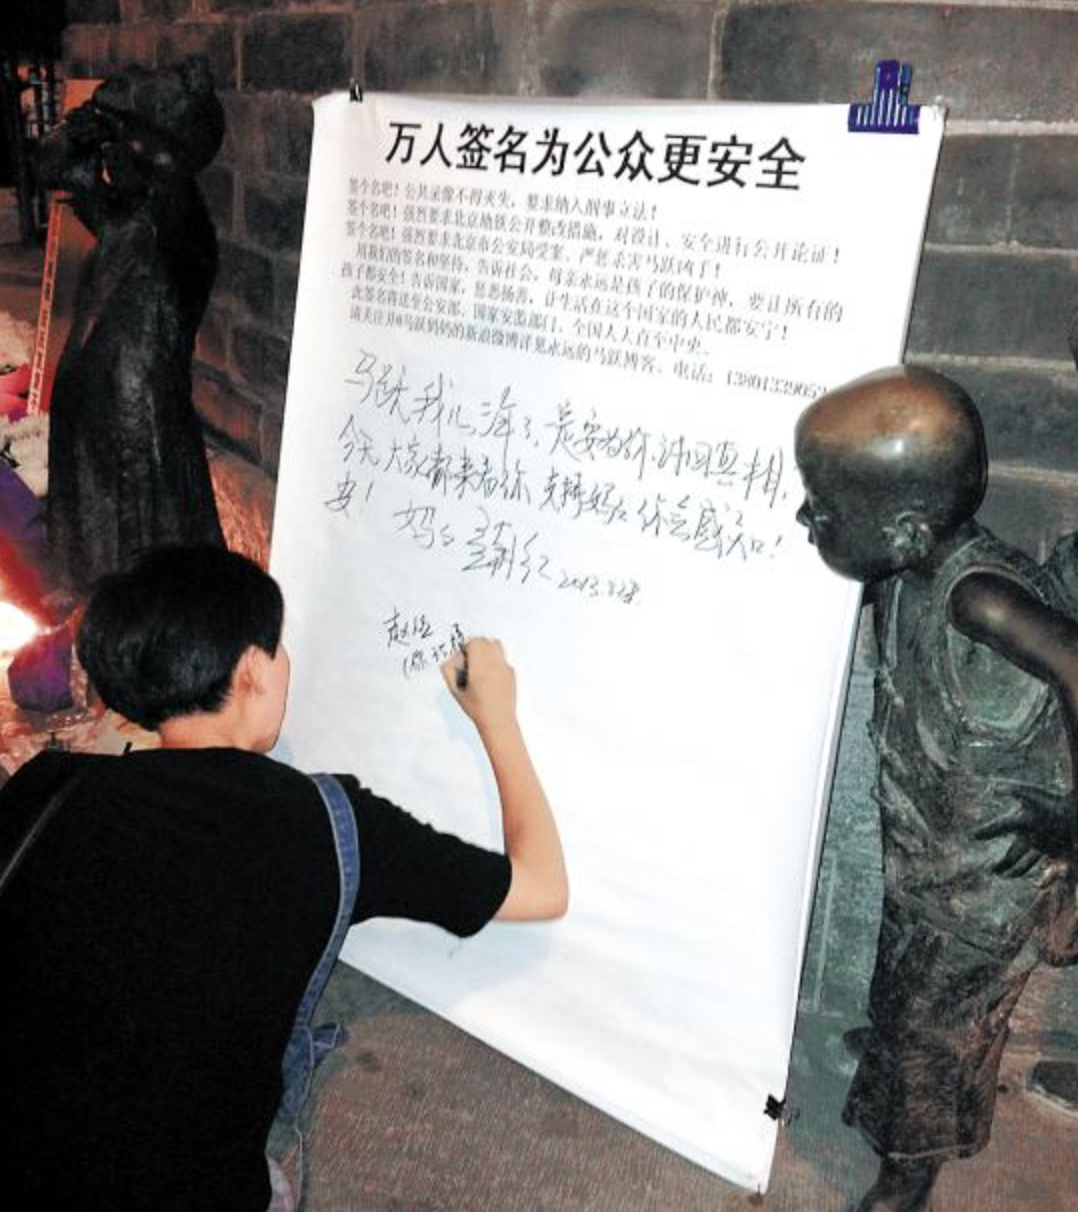 万人签名为公众更安全
签个名吧！公共录像不得灭失，要求纳入刑事立法！
签个名吧！强烈要求北京地铁公开整改措施，对设计、安全进行公开论证！
签个名吧！强烈要求北京市公安局受案、严惩杀害马跃凶手！
用我们的签名和坚持，告诉社会，母亲永远是孩子的保护神，要让所有的
孩子都安全！告诉国家，惩恶扬善，让生活在这个国家的人民都安宁！
此签名将送至公安部、国家安监部门、全国人大直至中央。
请关注并@马跃妈妈的新浪微博详见永远的马跃博客、电话：1380133905
马跃我儿，三年了，是要为你讨回真相，
今天大家都来看你，支持妈妈 你会感知！
安！ 妈妈 孟朝红 2013.8.23